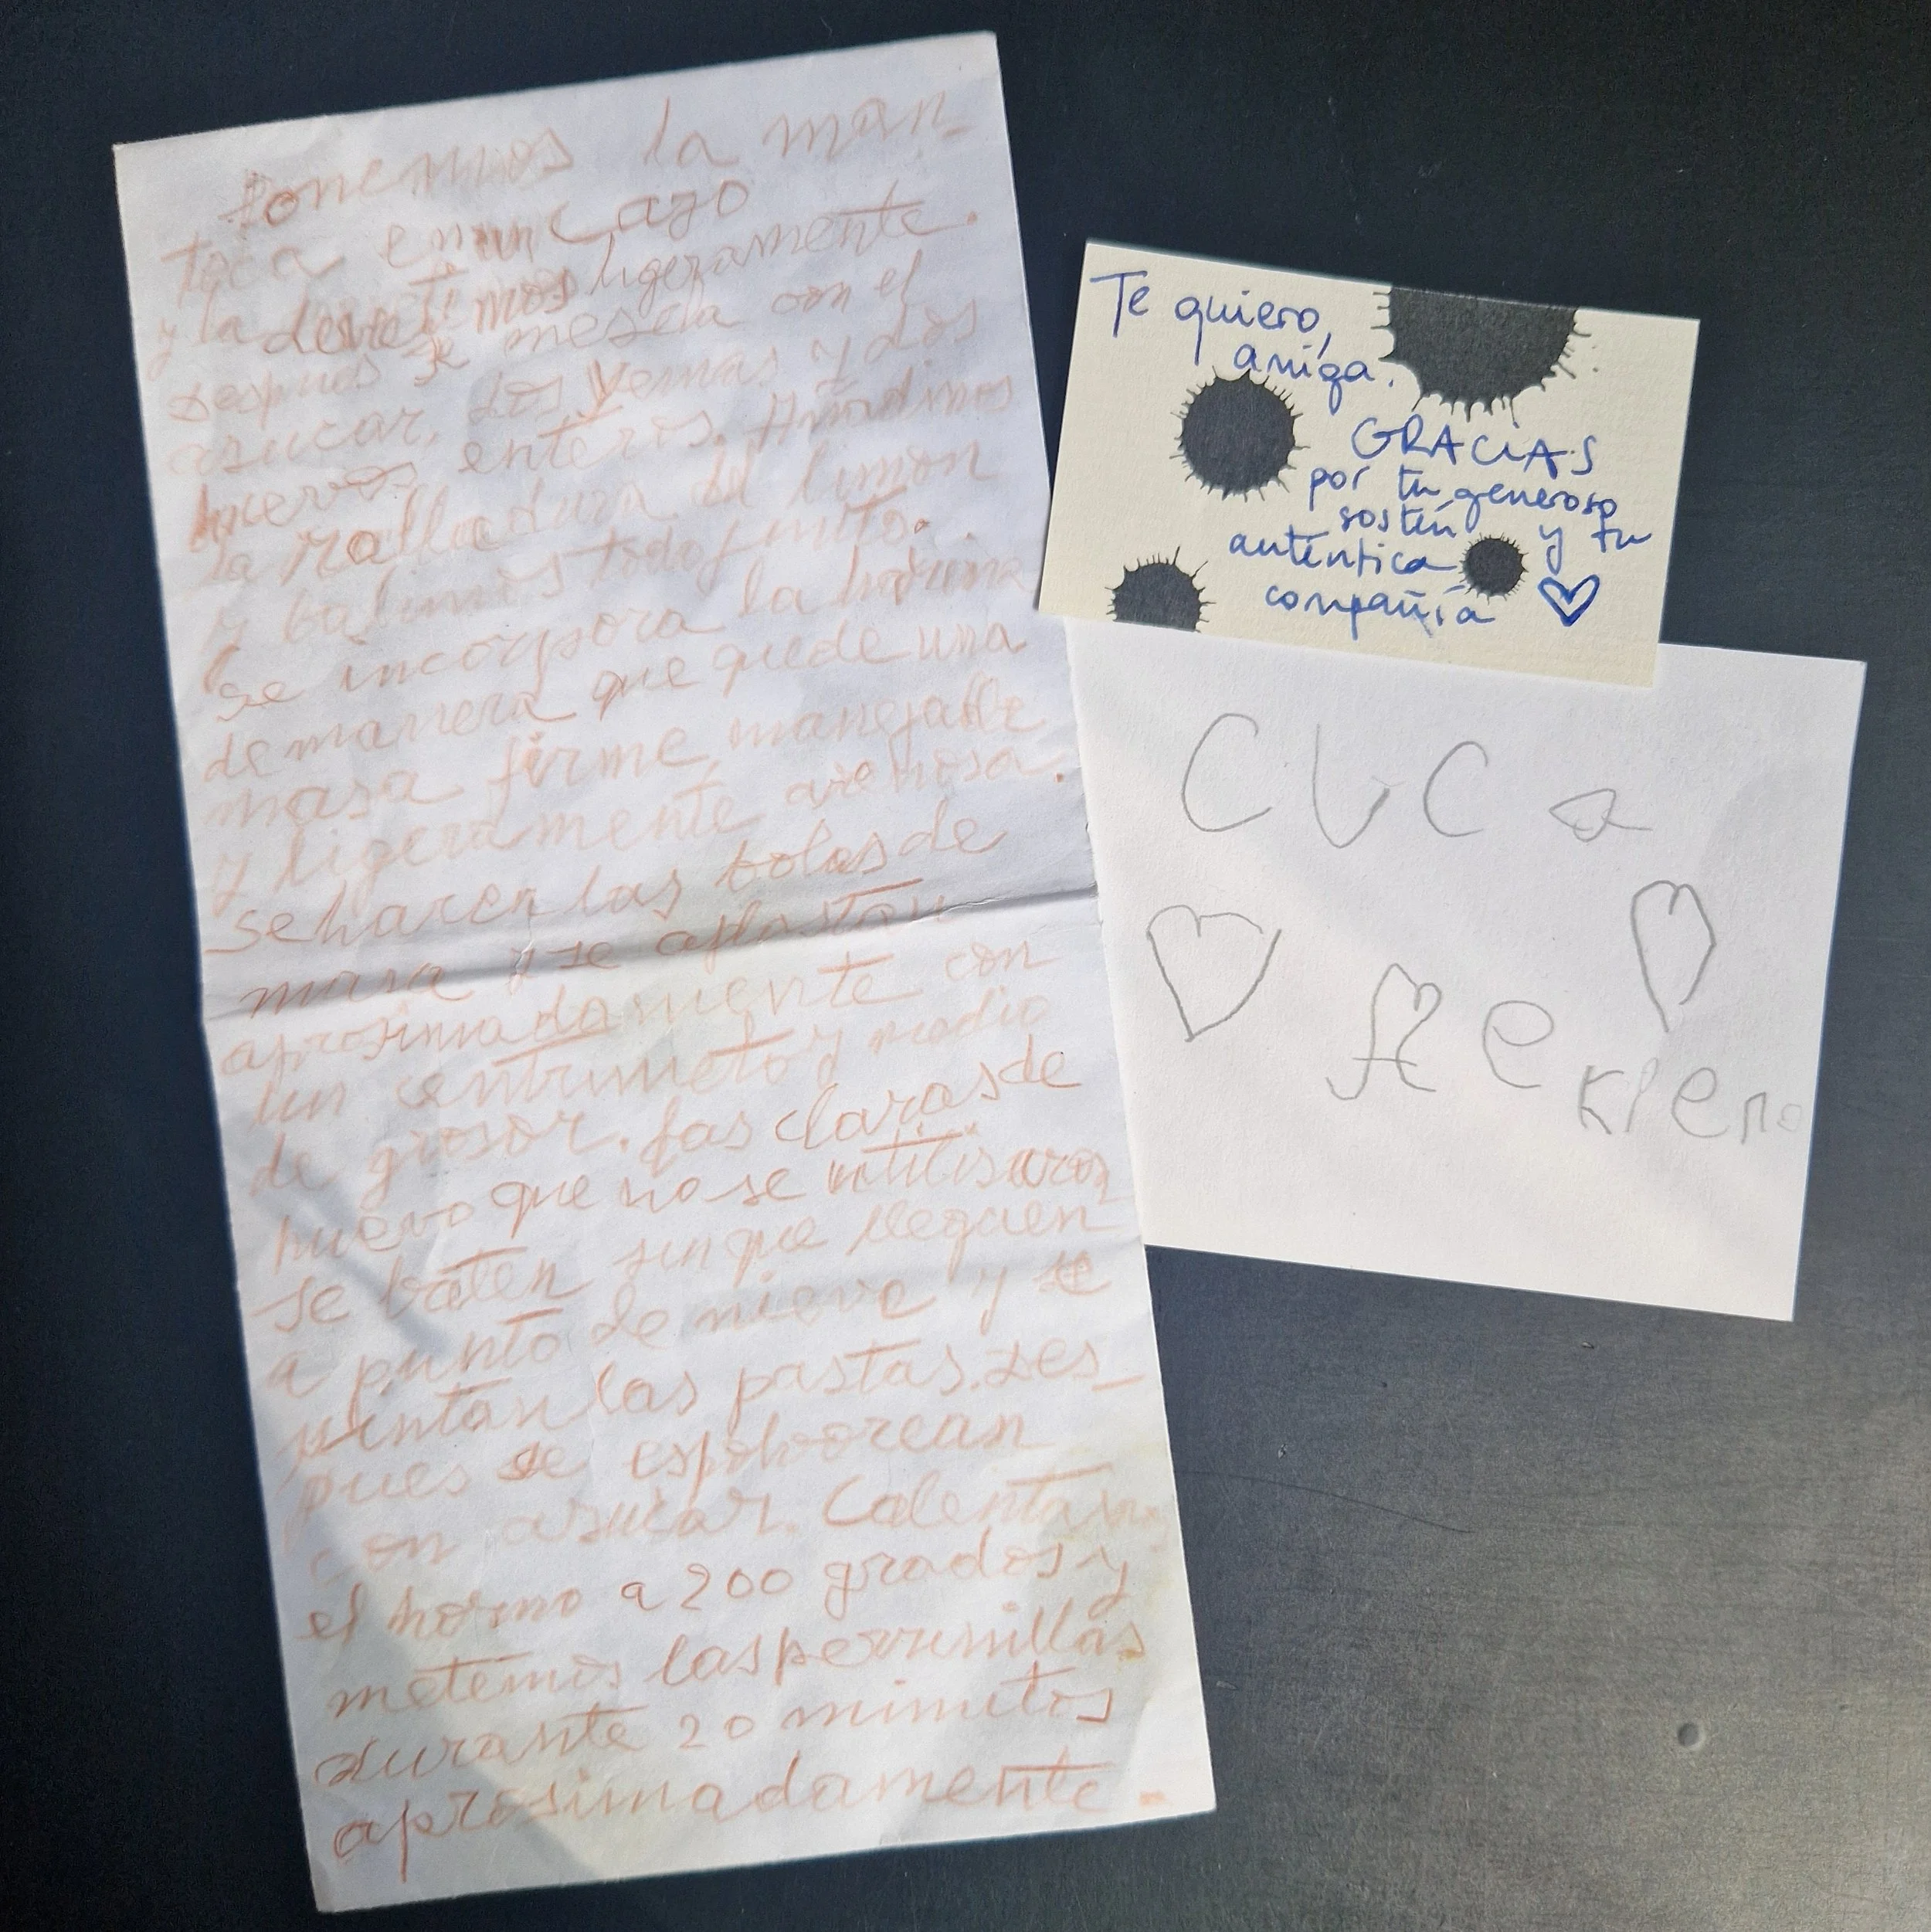 Ponemos la man-
teca en un cazo
y la derretimos ligeramente.
Despues se mescla con el
asucar, dos yemas y dos
huevos enteros. Añadimos
la ralladura del limon
y batimos todo junto.
se incorpora la harina
de manera que quede una
masa firme, manejable
y ligeramente arenosa.
se hacen las bolas de
masa y se aplastan
aprosimadamente con
un centimetro y medio
de grosor. Las claras de
huevo que no se utilisaron
se baten sin que lleguen
a punto de nieve y se
pintan las pastas. Des-
pues se espolvorean
con asucar. Calentamos
el horno a 200 grados y
metemos las perrunillas
durante 20 minutos
aprosimadamente.
Te quiero,
amiga.
GRACIAS
por tu generoso
sostén y tu
auténtica
compañía
CUCa
Ae
KIero